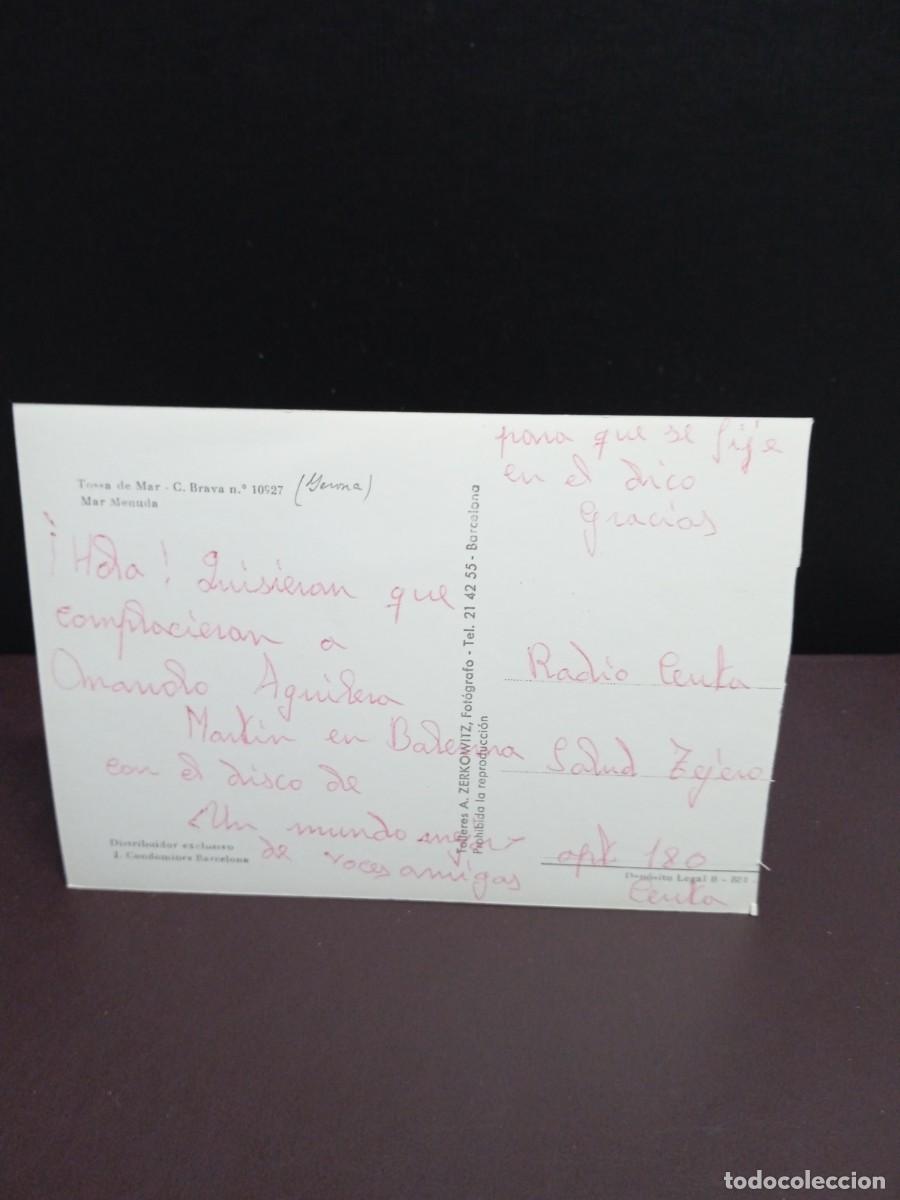 Tossa de Mar - C. Brava n.º 10927 (Gerona)
Mar Menuda
¡Hola! Quisieran que
complacieran a
Amando Aguilera
Martin en Balerma
con el disco de
Un mundo mejor
de voces amigas
Distribuidor exclusivo
J. Condomines Barcelona
Talleres A. ZERKOWITZ, Fotógrafo - Tel. 21 42 55 - Barcelona
Prohibida la reproducción
para que se fije
en el dico
Gracias
Radio Ceuta
Salud Tejero
apt 180
Depósito Legal B - 
Ceuta
todocoleccion